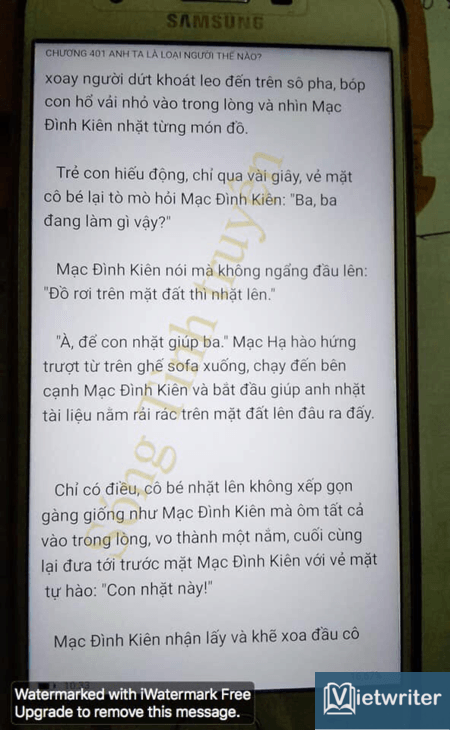 SAMSUNG
CHƯƠNG 401 ANH TA LÀ LOẠI NGƯỜI THẾ NÀO?
xoay người dứt khoát leo đến trên sô pha, bóp
con hổ vải nhỏ vào trong lòng và nhìn Mạc
Đình Kiên nhặt từng món đồ.
Trẻ con hiếu động, chỉ qua vài giây, vẻ mặt
cô bé lại tò mò hỏi Mạc Đình Kiên: "Ba, ba
đang làm gì vậy?"
Mạc Đình Kiên nói mà không ngẩng đầu lên:
"Đồ rơi trên mặt đất thì nhặt lên."
"À, để con nhặt giúp ba." Mạc Hạ hào hứng
trượt từ trên ghế sofa xuống, chạy đến bên
cạnh Mạc Đình Kiên và bắt đầu giúp anh nhặt
tài liệu nằm rải rác trên mặt đất lên đâu ra đấy.
Chỉ có điều, cô bé nhặt lên không xếp gọn
gàng giống như Mạc Đình Kiên mà ôm tất cả
vào trong lòng, vo thành một nắm, cuối cùng
lại đưa tới trước mặt Mạc Đình Kiên với vẻ mặt
tự hào: "Con nhặt này!"
Mạc Đình Kiên nhận lấy và khẽ xoa đầu cô
Sóng Tình truyện
Watermarked with iWatermark Free
Upgrade to remove this message.
Vietwriter